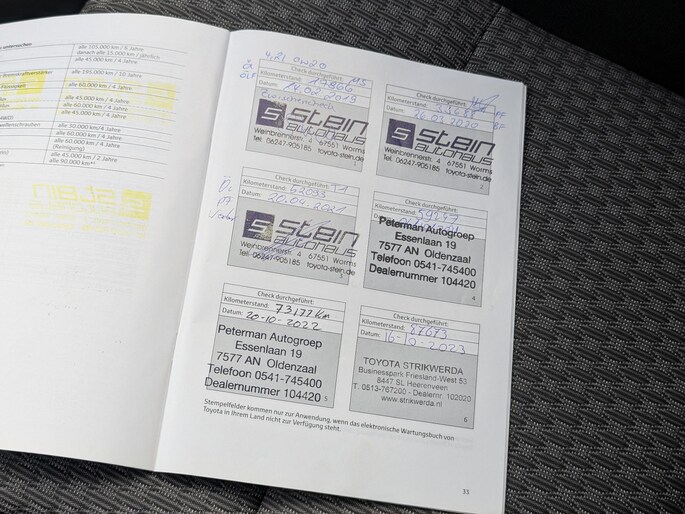 alle 105.000 km / 6 Jahre
danach alle 15.000 km / jährlich
alle 45.000 km / 4 Jahre
alle 195.000 km / 10 Jahre
alle 60.000 km / 4 Jahre
alle 45.000 km / 4 Jahre
alle 60.000 km / 4 Jahre
alle 45.000 km / 4 Jahre
alle 30.000 km/4 Jahre
alle 60.000 km / 4 Jahre
alle 60.000 km / 4 Jahre
(Reinigung)
alle 45.000 km / 2 Jahre
alle 90.000 km**
Check durchgeführt:
Kilometerstand:
Datum: 14.02.2019
stein
autohaus
Weinbrennerstr. 4 67551 Worms
Tel. 06247-905185 toyota-stein.de
1
Check durchgeführt:
Kilometerstand:
Datum: 26.03.2020
stein
autohaus
Weinbrennerstr. 4 67551 Worms
Tel. 06247-905185 toyota-stein.de
2
Check durchgeführt:
Kilometerstand:
Datum: 20.04.2021
stein
autohaus
Weinbrennerstr. 4 67551 Worms
Tel. 06247-905185 toyota-stein.de
3
Check durchgeführt:
Kilometerstand: 59247
Datum:
Peterman Autogroep
Essenlaan 19
7577 AN Oldenzaal
Telefoon 0541-745400
Dealernummer 104420
4
Check durchgeführt:
Kilometerstand: 73177 km
Datum: 20-10-2022
Peterman Autogroep
Essenlaan 19
7577 AN Oldenzaal
Telefoon 0541-745400
Dealernummer 104420
5
Check durchgeführt:
Kilometerstand: 87673
Datum: 16-10-2023
TOYOTA STRIKWERDA
Businesspark Friesland-West 53
8447 SL Heerenveen
T. 0513-767200 - Dealernr. 102020
www.strikwerda.nl
6
Stempelfelder kommen nur zur Anwendung, wenn das elektronische Wartungsbuch von
Toyota in Ihrem Land nicht zur Verfügung steht.
33